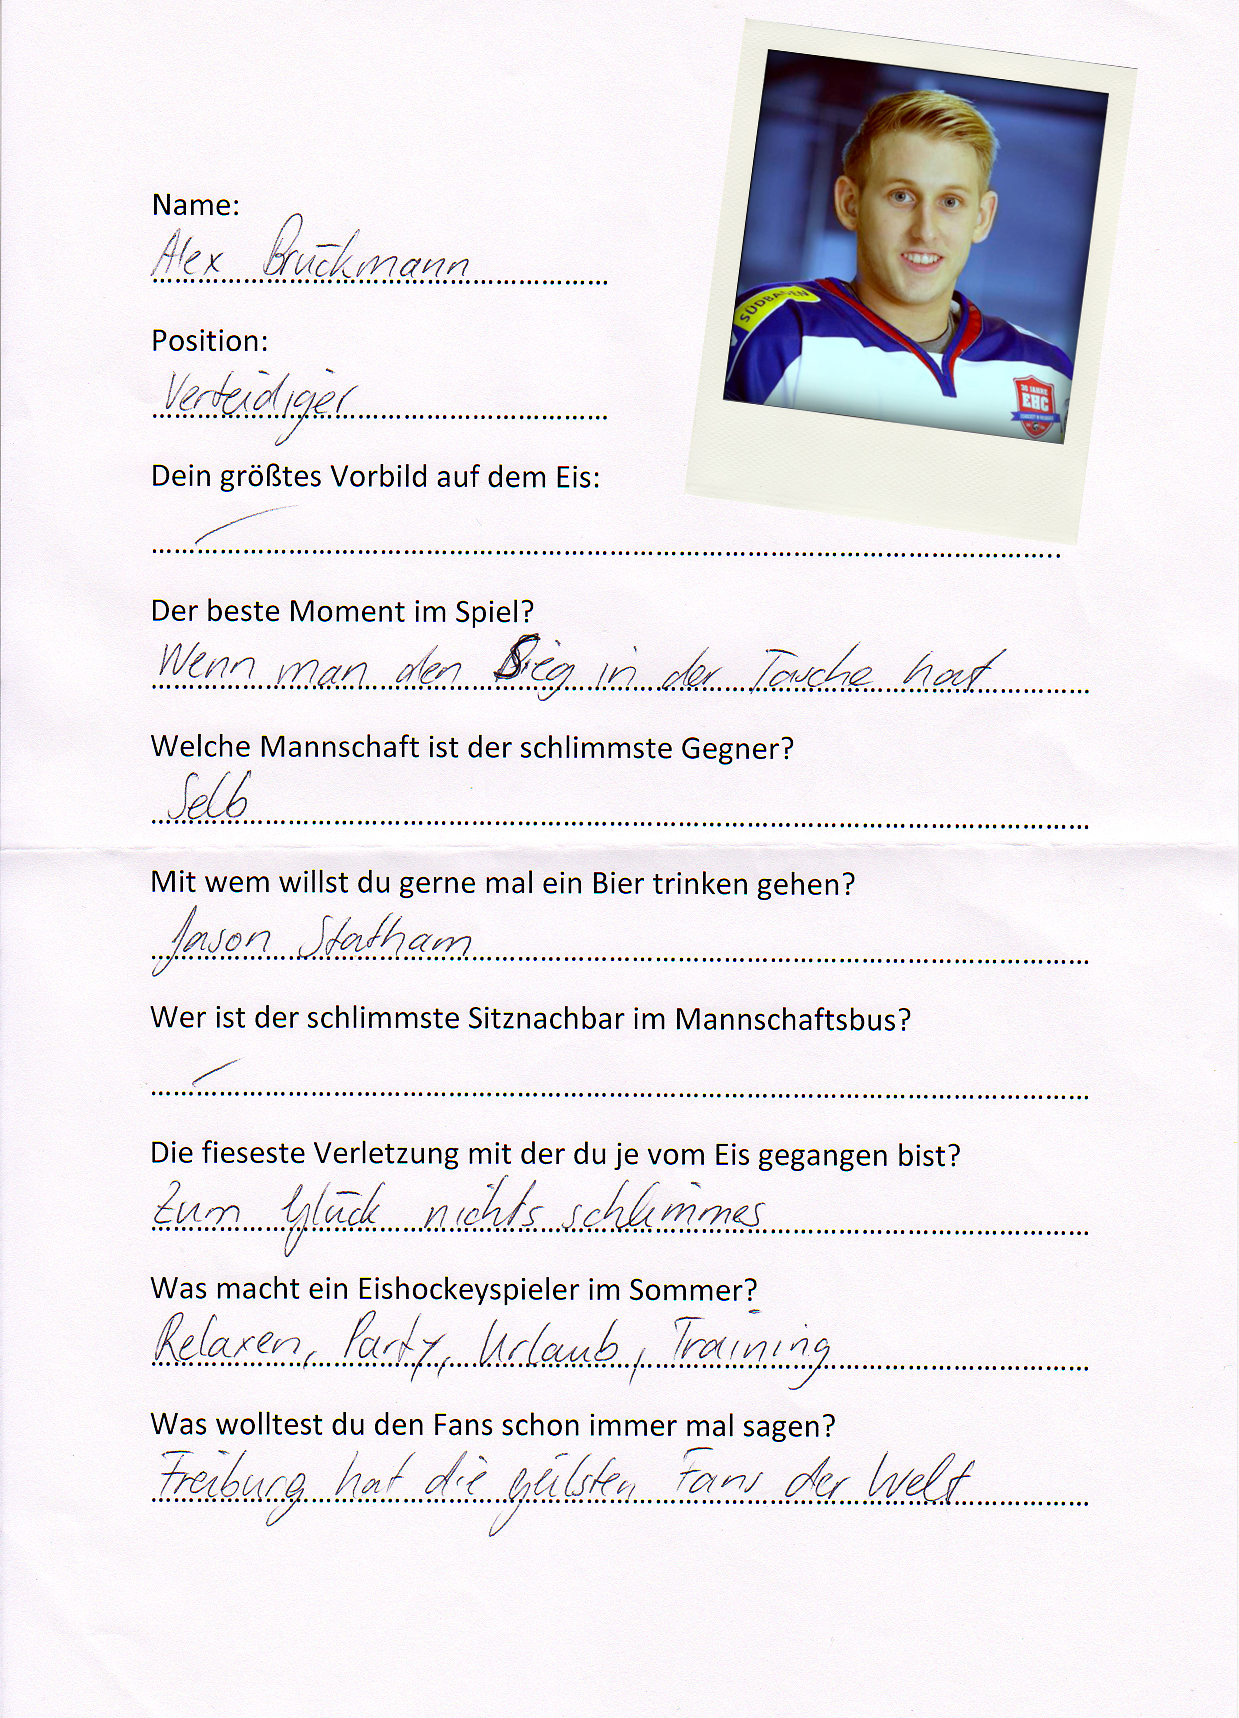 SÜDBADEN
30 JAHRE
EHC
Name:
Alex Brückmann
Position:
Verteidiger
Dein größtes Vorbild auf dem Eis:
Der beste Moment im Spiel?
Wenn man den Sieg in der Tasche hat
Welche Mannschaft ist der schlimmste Gegner?
Selb
Mit wem willst du gerne mal ein Bier trinken gehen?
Jason Statham
Wer ist der schlimmste Sitznachbar im Mannschaftsbus?
Die fieseste Verletzung mit der du je vom Eis gegangen bist?
Zum Glück nichts schlimmes
Was macht ein Eishockeyspieler im Sommer?
Relaxen, Party, Urlaub, Training
Was wolltest du den Fans schon immer mal sagen?
Freiburg hat die geilsten Fans der Welt